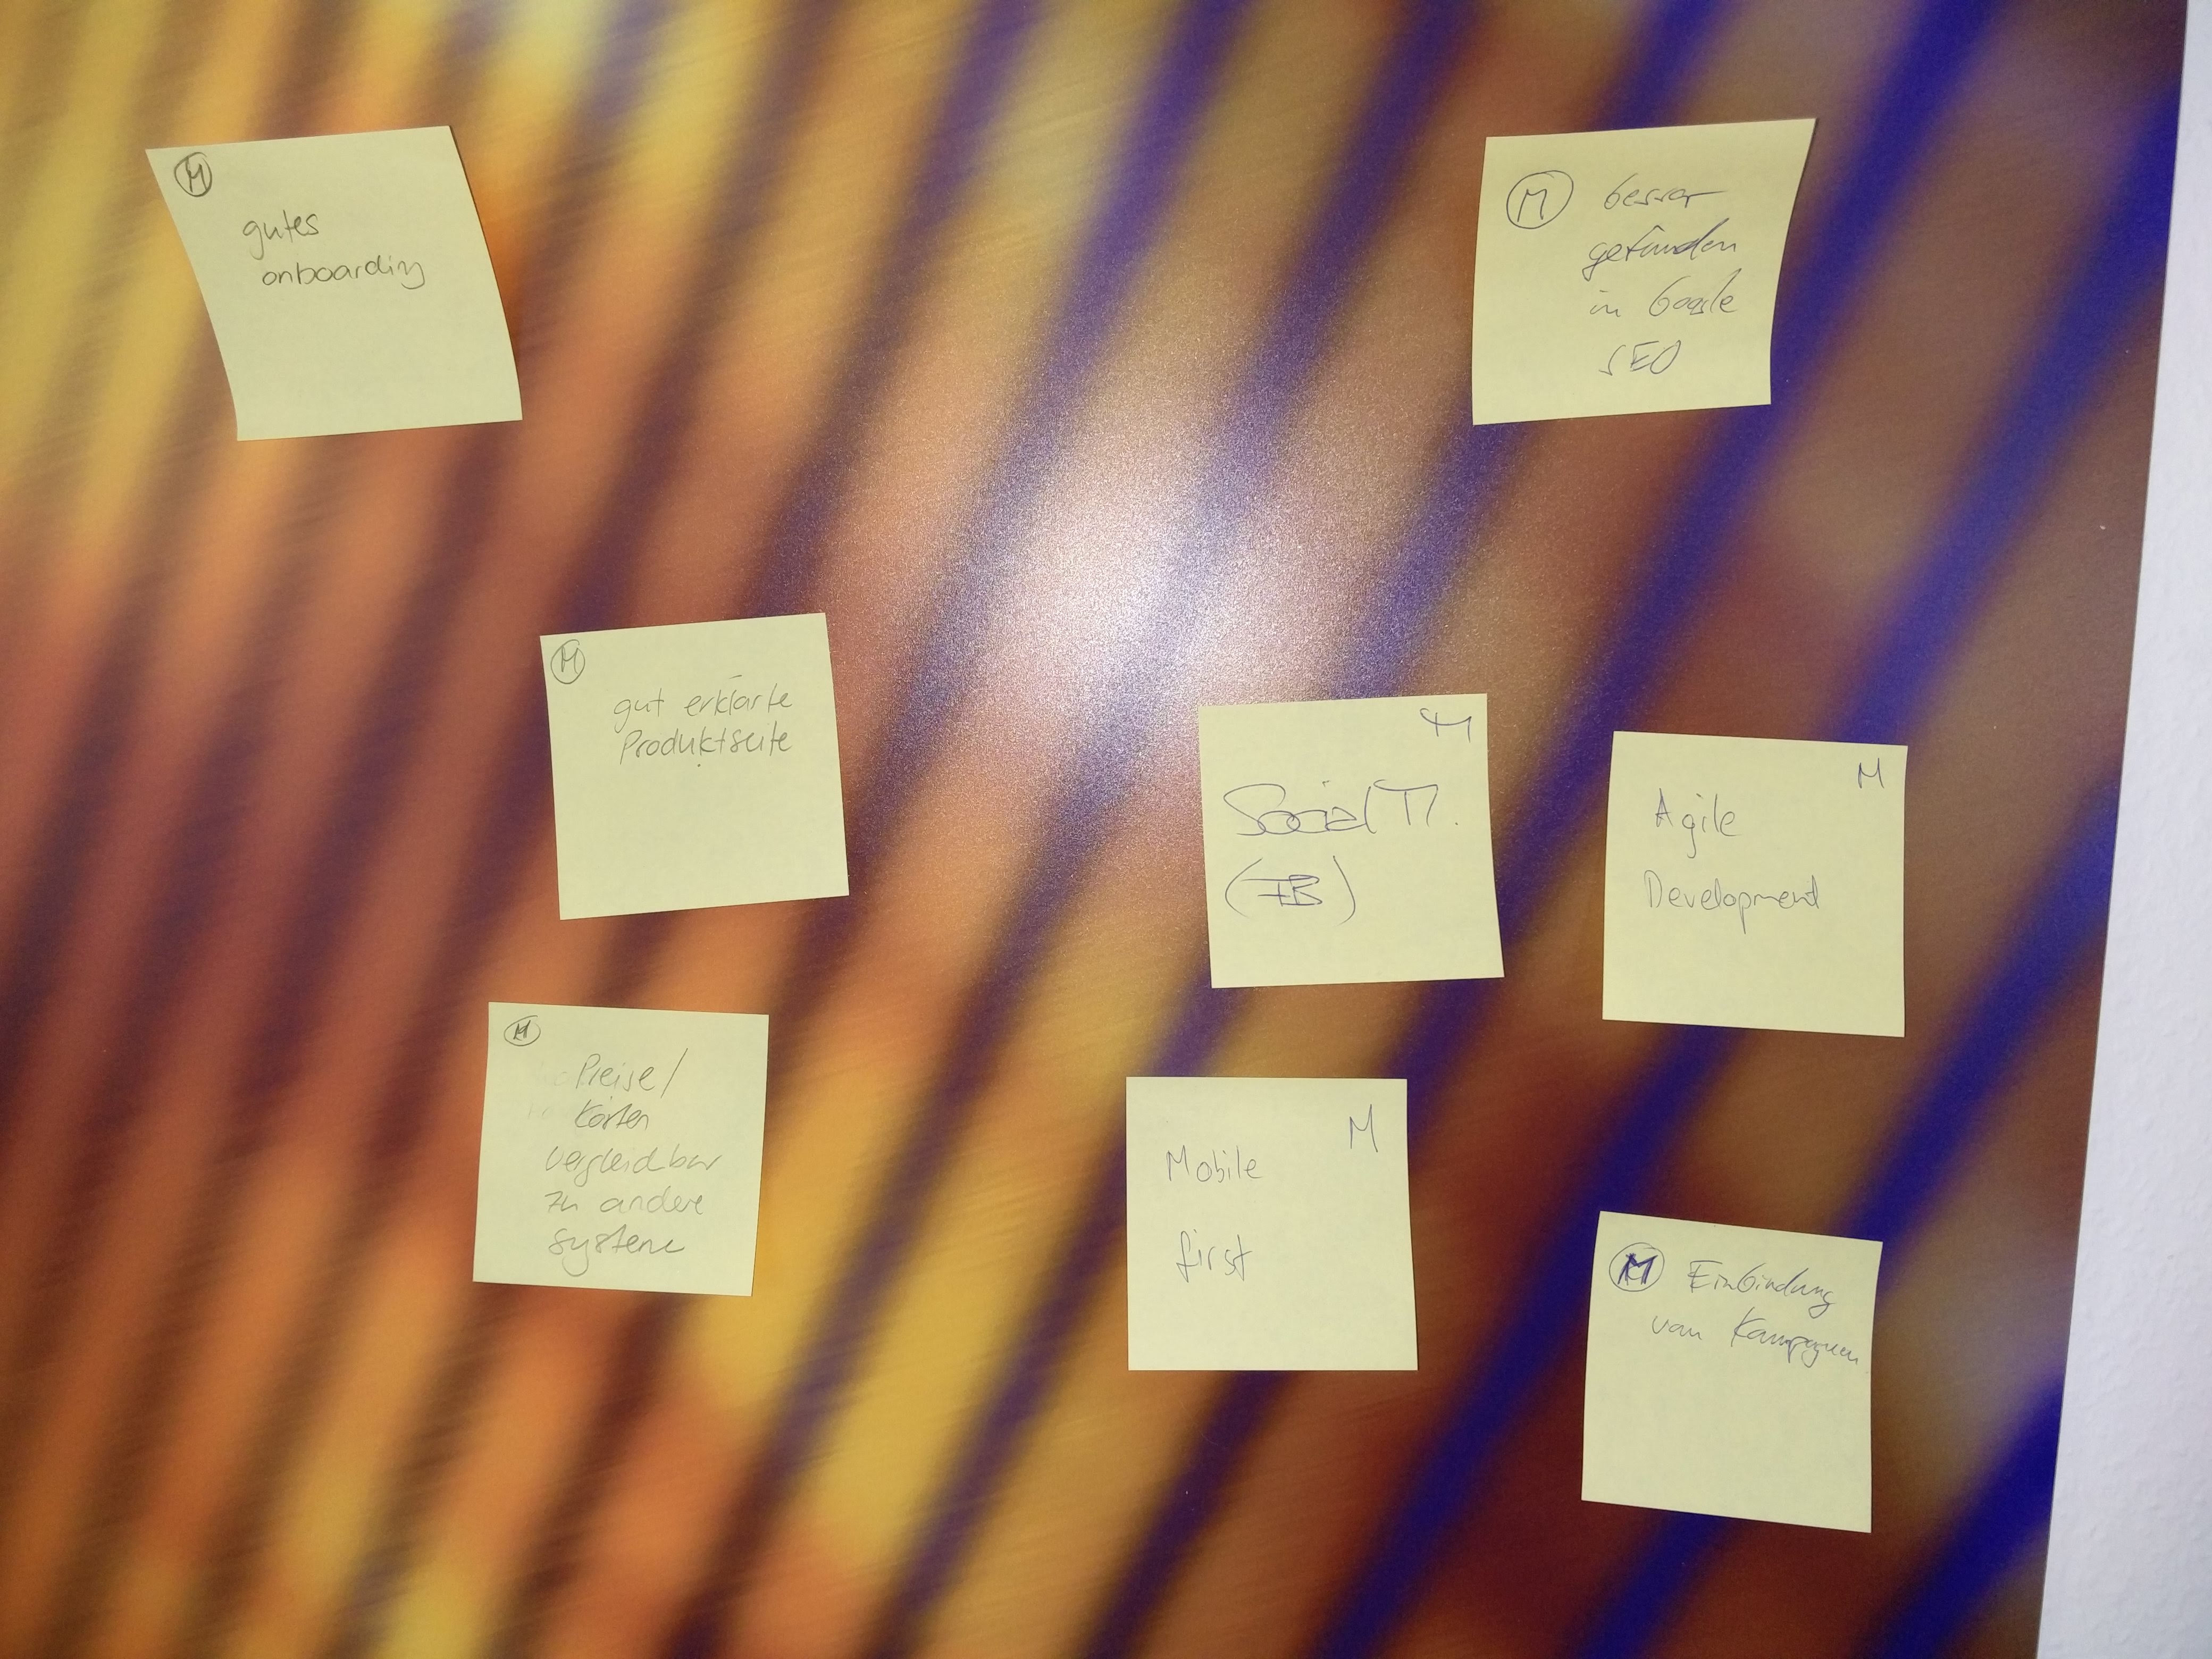 M
gutes
onboarding
M besser
gefunden
in Google
SEO
M
gut erklärte
Produktseite
M
Social M.
(FB)
M
Agile
Development
M
Preise/
Kosten
vergleichbar
zu andere
systeme
M
Mobile
first
M Einbindung
von Kampagnen